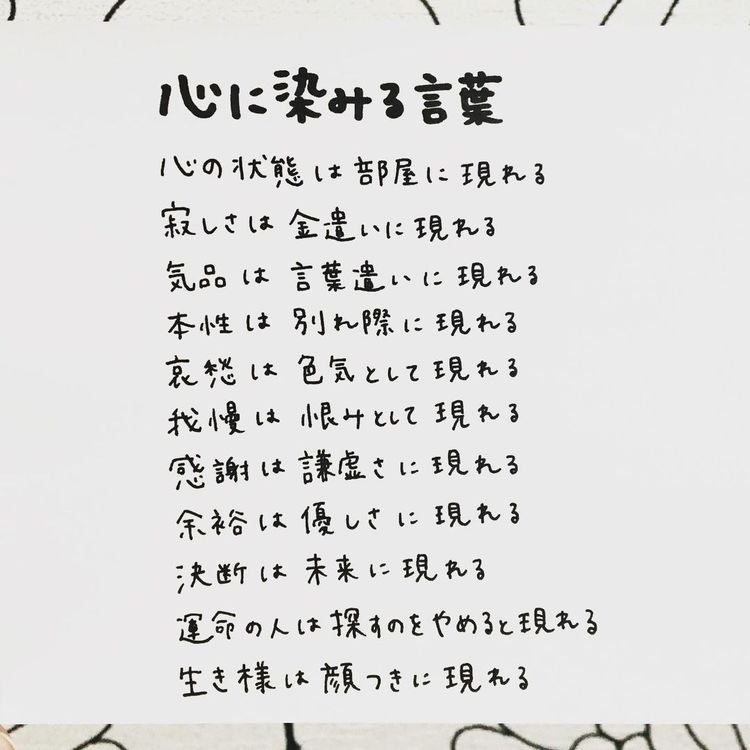 心に染みる言葉
心の状態は部屋に現れる
寂しさは金遣いに現れる
気品は言葉遣いに現れる
本性は別れ際に現れる
哀愁は色気として現れる
我慢は恨みとして現れる
感謝は謙虚さに現れる
余裕は優しさに現れる
決断は未来に現れる
運命の人は探すのをやめると現れる
生き様は顔つきに現れる